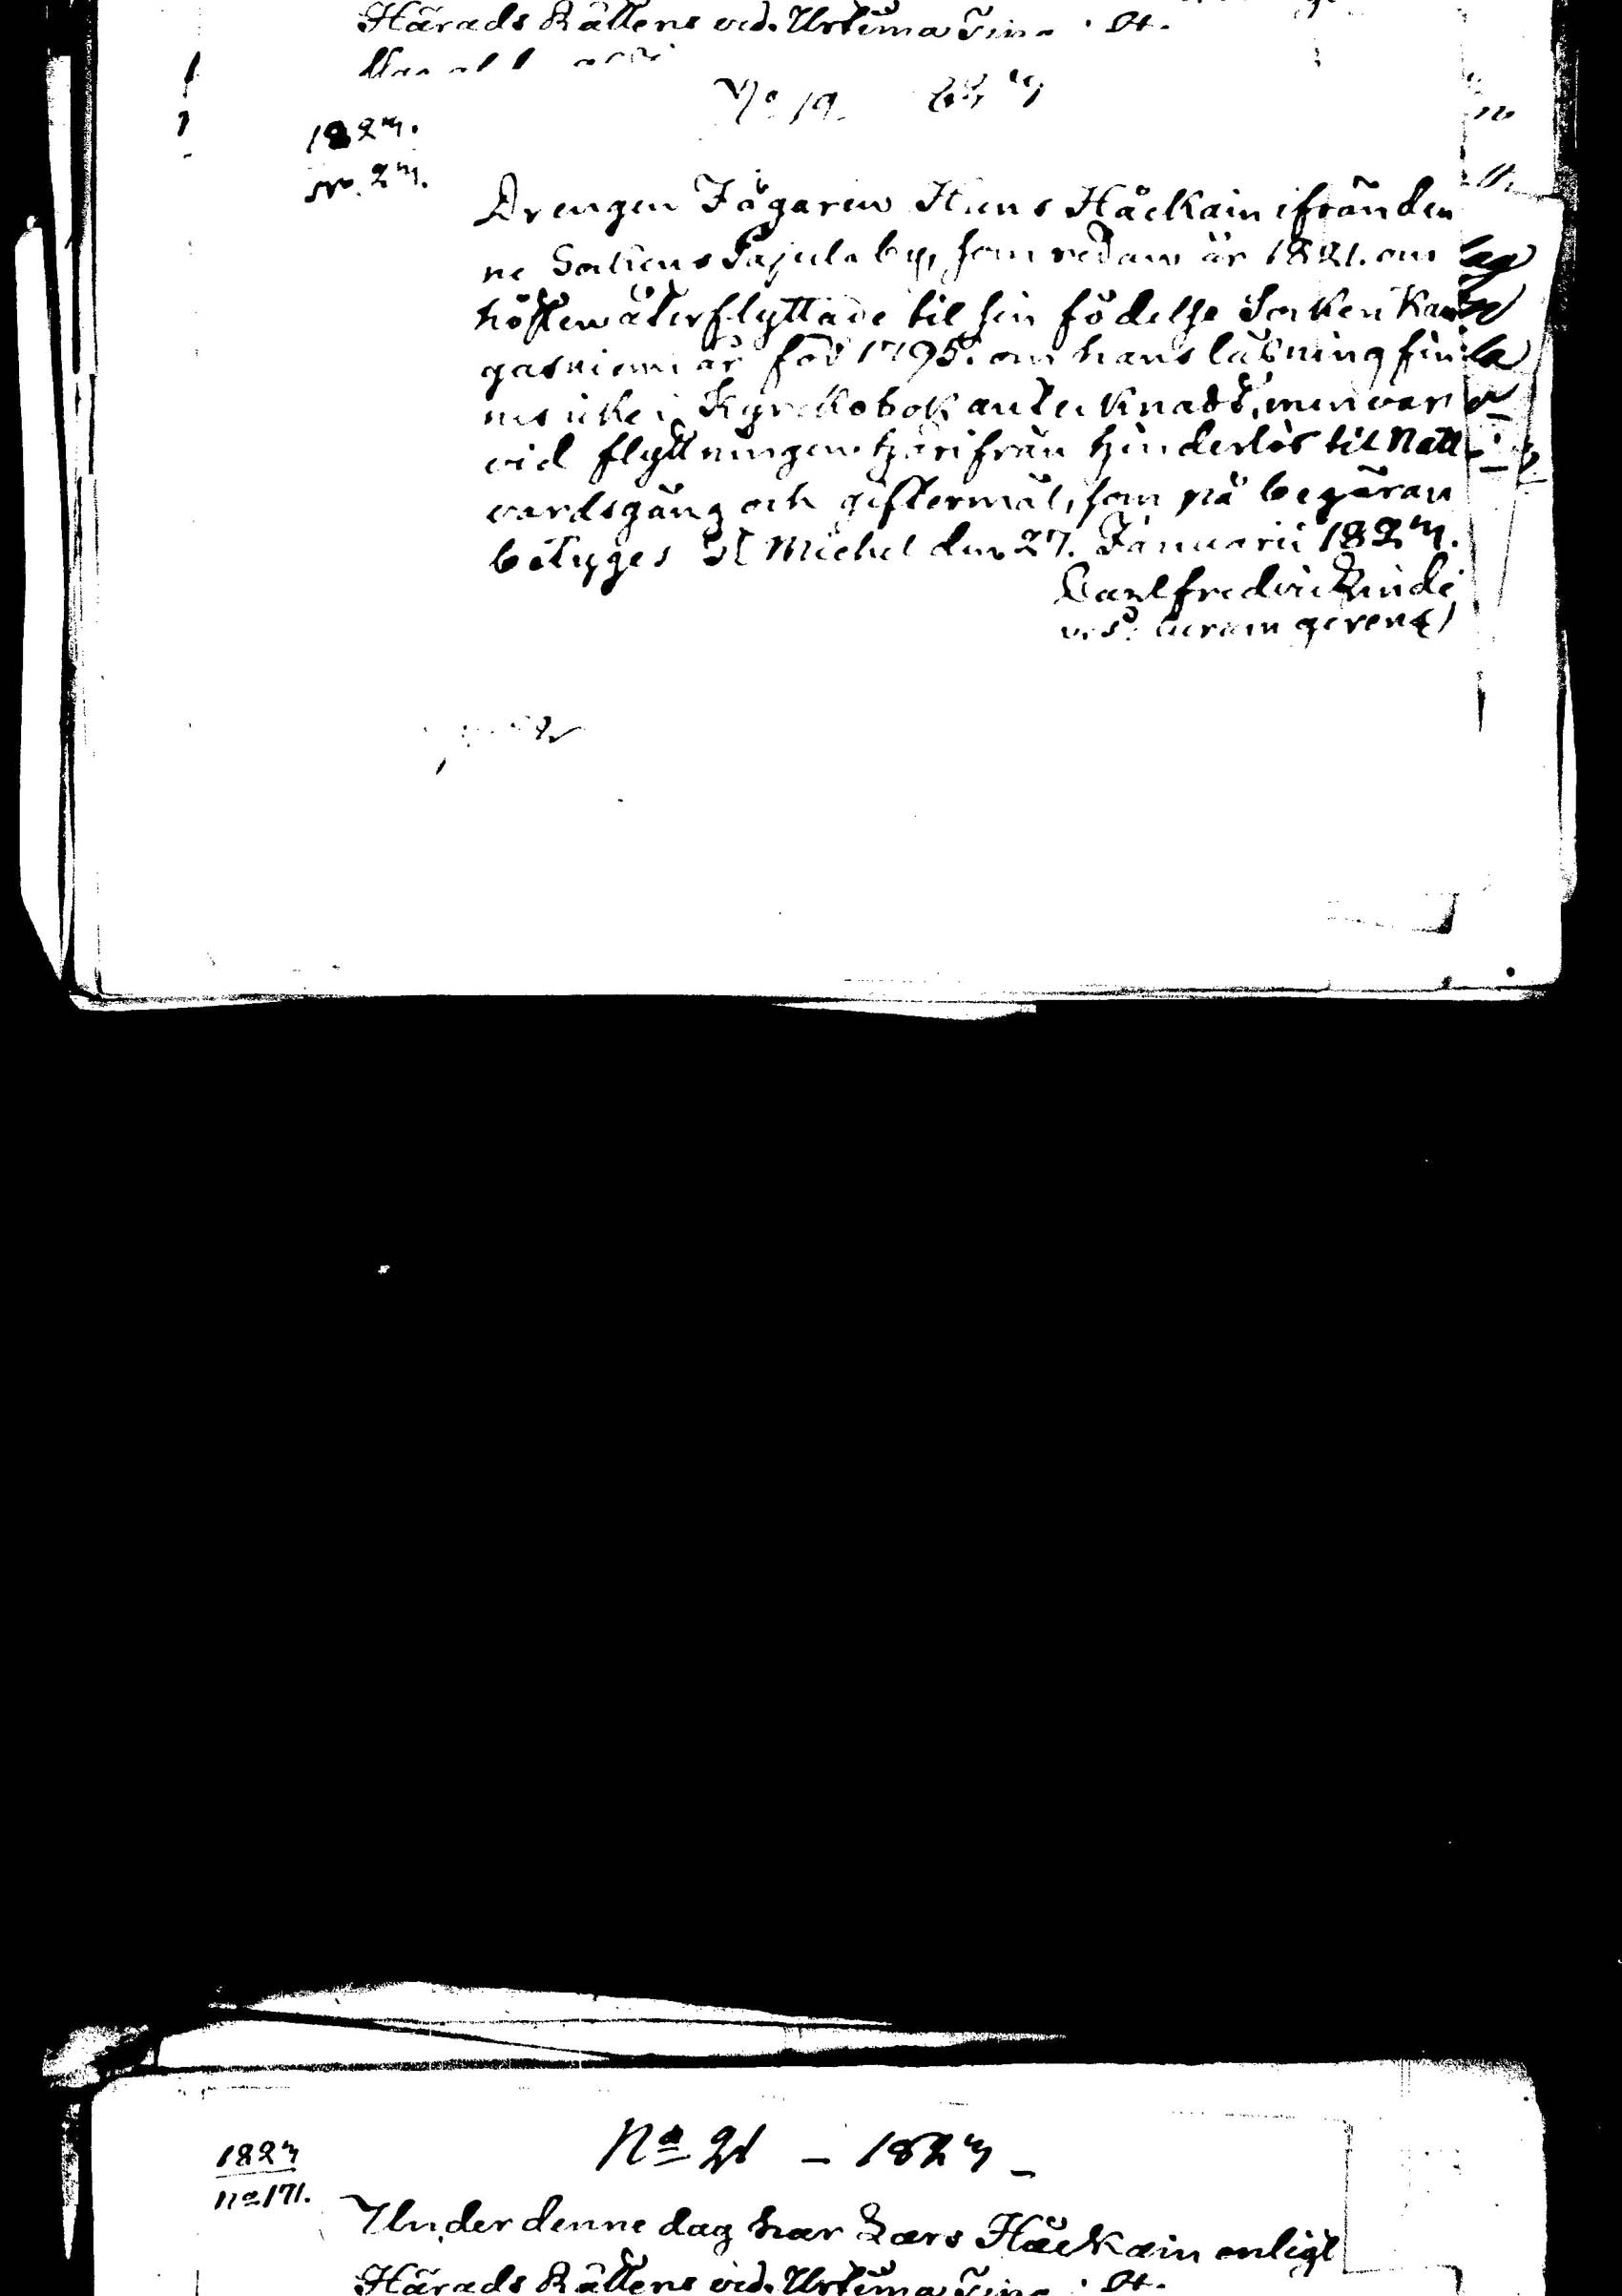 Härads Rättens vid. Urtima Ting
No 19.
1827.
No. 27.
Drengen Jägaren Hans Häckain ifrån den
ne Sockens Pajula by, som redan år 1821. om
hösten återflyttade til sin födelse Socken Kan
gasniemi är föd 1795. om hans läsning fin
nes icke i Kyrckobok anteknadt, men var
vid flyttningen härifrån hinderlös til Natt
vardsgång och giftermål, som på begäran
betyges St Michel den 27. Januarii 1827.
Carl Fredric
v. s. curam gerens
No 21 - 1827 -
1827
No 171.
Under denne dag har Lars Häckain enligt
Härads Rättens vid. Urtima Ting